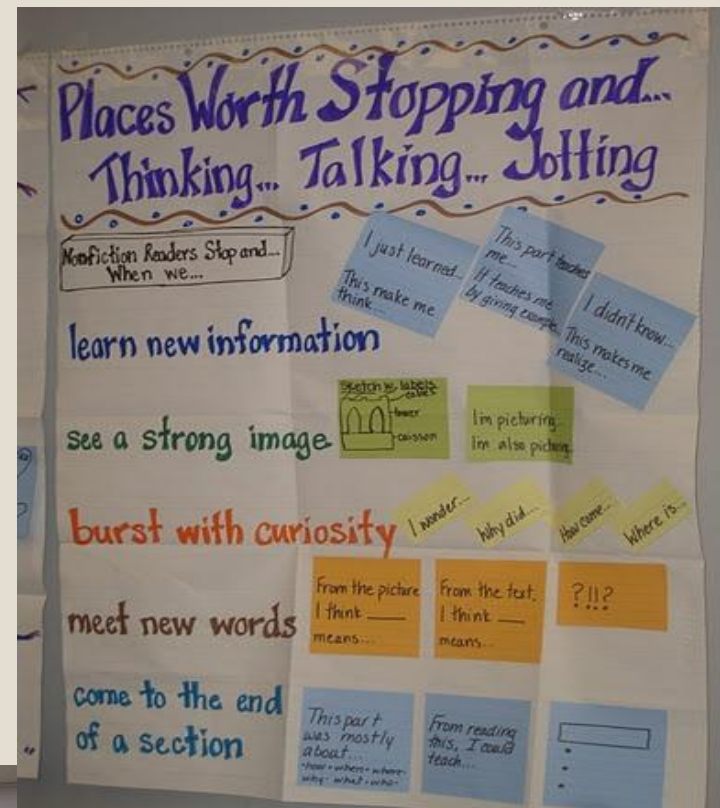 Places Worth Stopping and...
Thinking... Talking... Jotting
Nonfiction Readers Stop and...
When we...
I just learned...
This make me
think...
This part teaches
me...
It teaches me
by giving example
I didn't know...
This makes me
realize...
learn new information
see a strong image
Sketch w/ labels
cables
tower
caisson
Im picturing...
Im also picturing
burst with curiosity
I wonder...
Why did...
How come...
Where is...
meet new words
From the picture
I think ____
means...
From the text,
I think ____
means...
?!!?
come to the end
of a section
This part
was mostly
about...
-how-when-where-
why-what-who-
From reading
this, I could
teach...